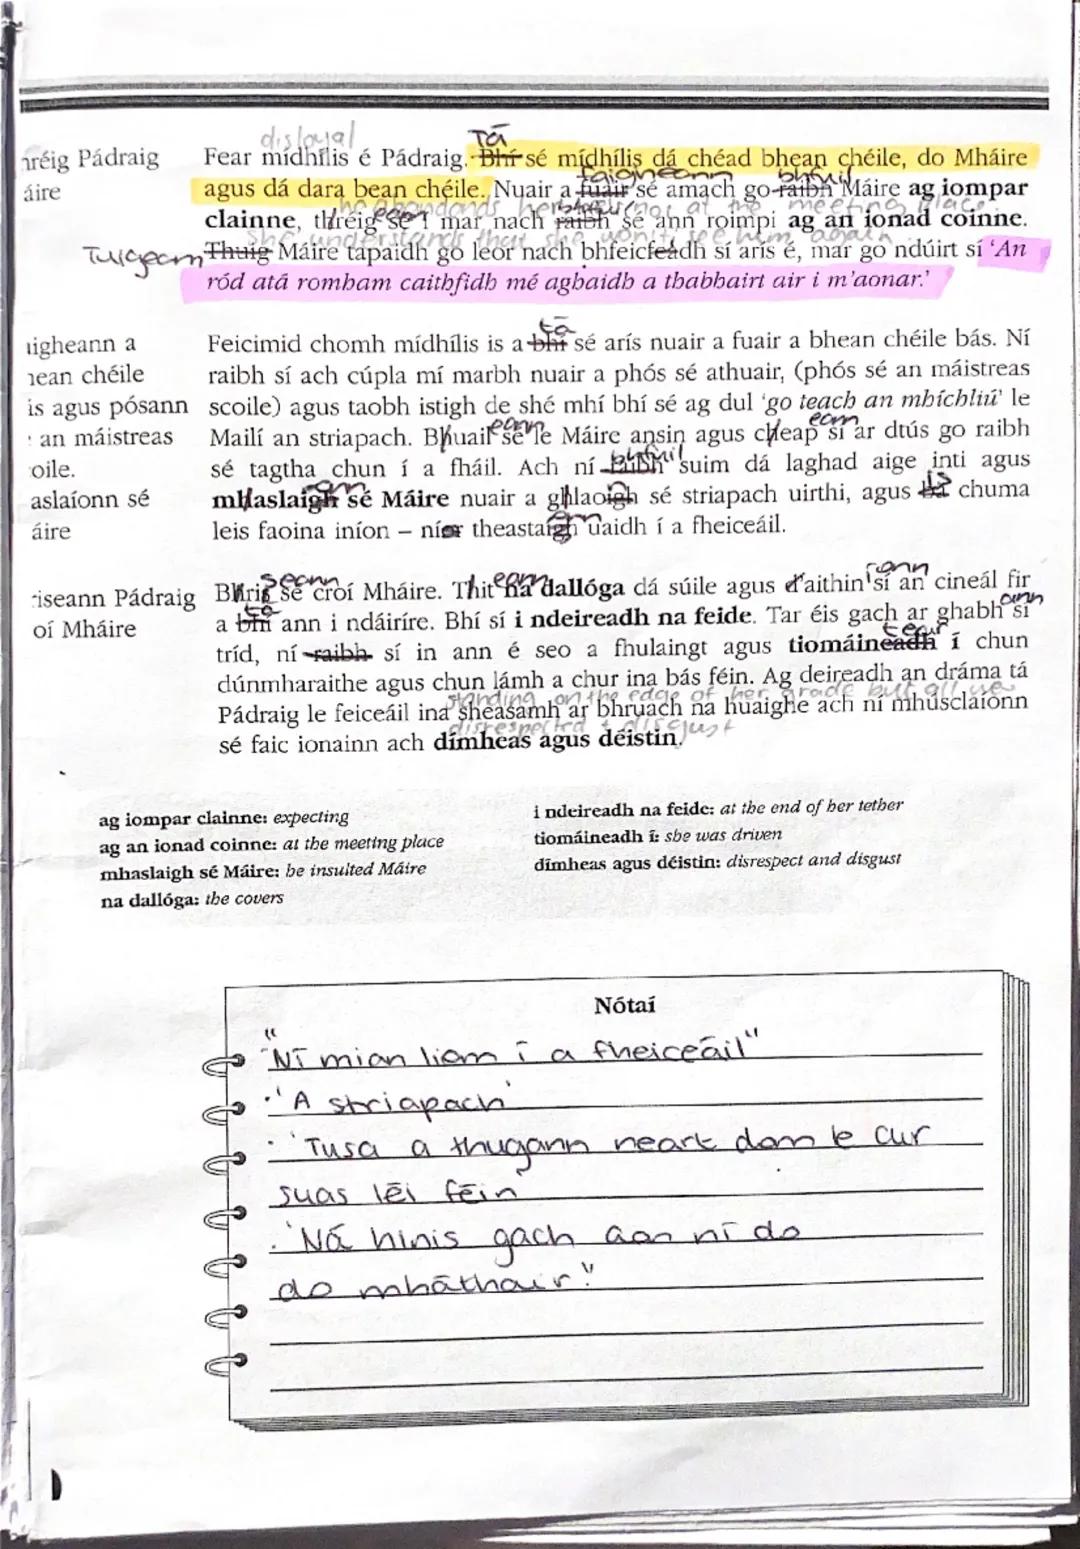 disloyal
Tá
hréig Pádraig
áire
Fear mídhílis é Pádraig. Bhí sé mídhílis dá chéad bhean chéile, do Mháire
faigheann bhfuil
agus dá dara bean chéile. Nuair a fuair sé amach go raibh Máire ag iompar
he abandonds her not at the meeting place
clainne, thréig sé í mar nach raibh sé ann roimpi ag an ionad coinne.
eann
she understands that she won't see him again
Tuigeann
Thuig Máire tapaidh go leor nach bhfeicfeadh sí arís é, mar go ndúirt sí 'An
ród atá romham caithfidh mé aghaidh a thabhairt air i m'aonar.'
aigheann a
hean chéile
is agus pósann
an máistreas
oile.
aslaíonn sé
áire
tá
Feicimid chomh mídhílis is a bhí sé arís nuair a fuair a bhean chéile bás. Ní
raibh sí ach cúpla mí marbh nuair a phós sé athuair, (phós sé an máistreas
scoile) agus taobh istigh de shé mhí bhí sé ag dul 'go teach an mhíchliú' le
eann
Mailí an striapach. Bhuail sé le Máire ansin agus cheap sí ar dtús go raibh
eann
bhfuil
sé tagtha chun í a fháil. Ach ní raibh suim dá laghad aige inti agus
mhaslaigh sé Máire nuair a ghlaoigh sé striapach uirthi, agus ba chuma
is
leis faoina iníon – níor theastaigh uaidh í a fheiceáil.
riseann Pádraig
oí Máire
seann
eann
Bhris sé croí Mháire. Thit na dallóga dá súile agus d'aithin sí an cineál fir
íonn
tá
ann
a bhí ann i ndáiríre. Bhí sí i ndeireadh na feide. Tar éis gach ar ghabh sí
tear
tríd, ní raibh sí in ann é seo a fhulaingt agus tiomáineadh í chun
dúnmharaithe agus chun lámh a chur ina bás féin. Ag deireadh an dráma tá
standing on the edge of her grade but all we
Pádraig le feiceáil ina sheasamh ar bhruach na huaighe ach ní mhúsclaíonn
disrespected + disgust
sé faic ionainn ach dímheas agus déistin.
ag iompar clainne: expecting
ag an ionad coinne: at the meeting place
mhaslaigh sé Máire: he insulted Máire
na dallóga: the covers
i ndeireadh na feide: at the end of her tether
tiomáineadh í: she was driven
dímheas agus déistin: disrespect and disgust
Nótaí
"Ní mian liom í a fheiceáil"
·'A striapach'
· 'Tusa a thugann neart dom le cur
suas léi féin
· 'Ná hinis gach aon ní do
do mháthair."